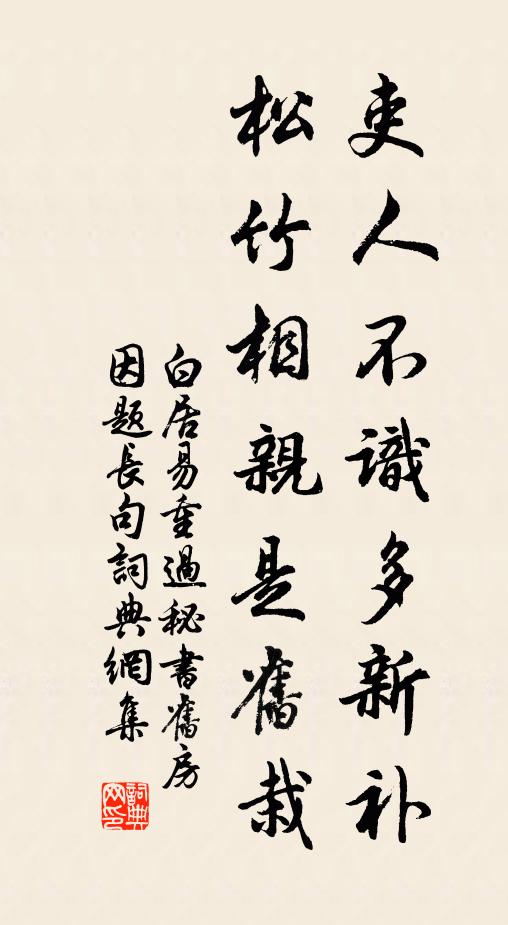 吏人不識多新补
松竹相親是舊栽
白居易重過秘書舊房
因題長句詞典網集
詞典
网印